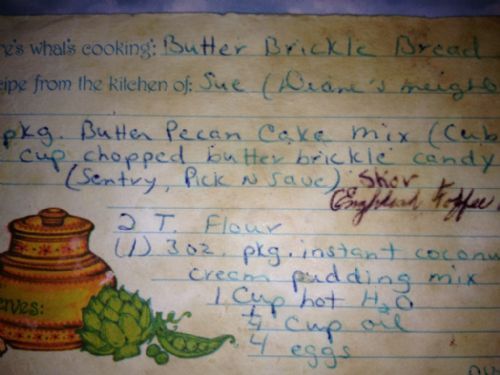 e's what's cooking: Butter Brickle Bread
cipe from the kitchen of: Sue (Diane's neighbo
pkg. Butter Pecan Cake mix (Cub
cup chopped butter brickle candy
(Sentry, Pick N Save) Skor
England toffee
2 T. Flour
(1) 3 oz. pkg. instant coconu
cream pudding mix
1 Cup hot H2O
1/4 cup oil
4 eggs
erves: